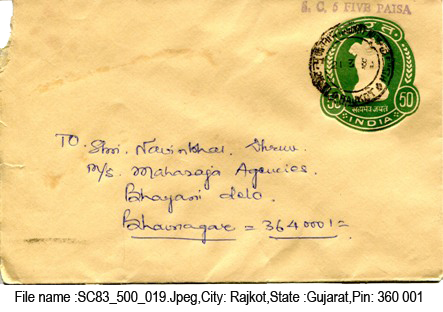 S. C. 5 FIVE PAISA
भारत
50 सत्यमेव जयते 50
INDIA
TO. Shri. Navinbhai. Dhruv.
M/s. Maharaja Agencies.
Bhayani delo.
Bhavnagar = 364001=
File name :SC83_500_019.Jpeg,City: Rajkot,State :Gujarat,Pin: 360 001